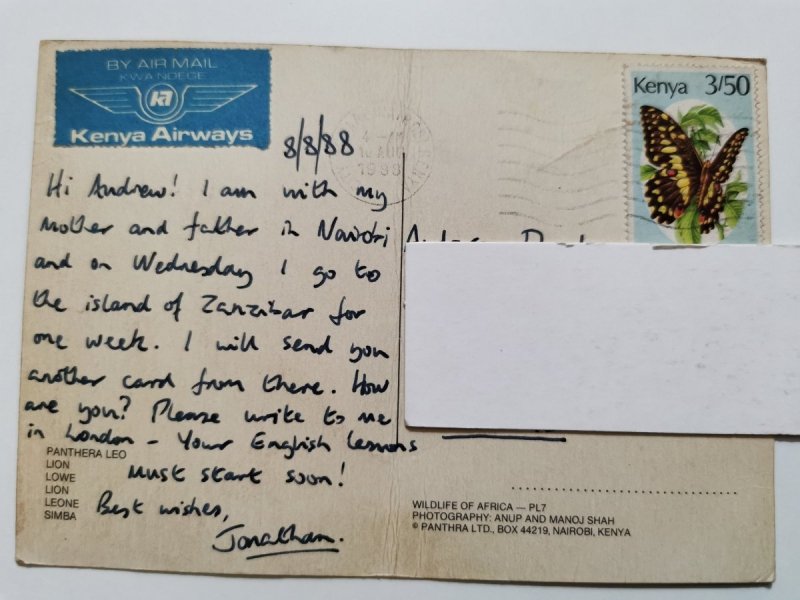 BY AIR MAIL
KWA NDEGE
Kenya Airways
Kenya 3/50
1988
8/8/88
Hi Andrew! I am with my
Mother and father in Nairobi
and on Wednesday I go to
the island of Zanzibar for
one week. I will send you
another card from there. How
are you? Please write to me
in London - Your English lessons
must start soon!
Best wishes,
Jonathan.
PANTHERA LEO
LION
LOWE
LION
LEONE
SIMBA
WILDLIFE OF AFRICA — PL7
PHOTOGRAPHY: ANUP AND MANOJ SHAH
© PANTHRA LTD., BOX 44219, NAIROBI, KENYA